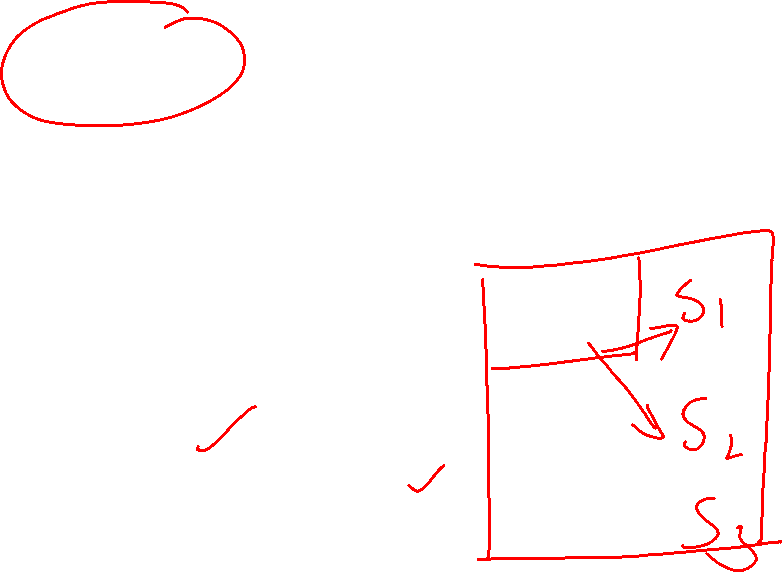 S1
S2
S3